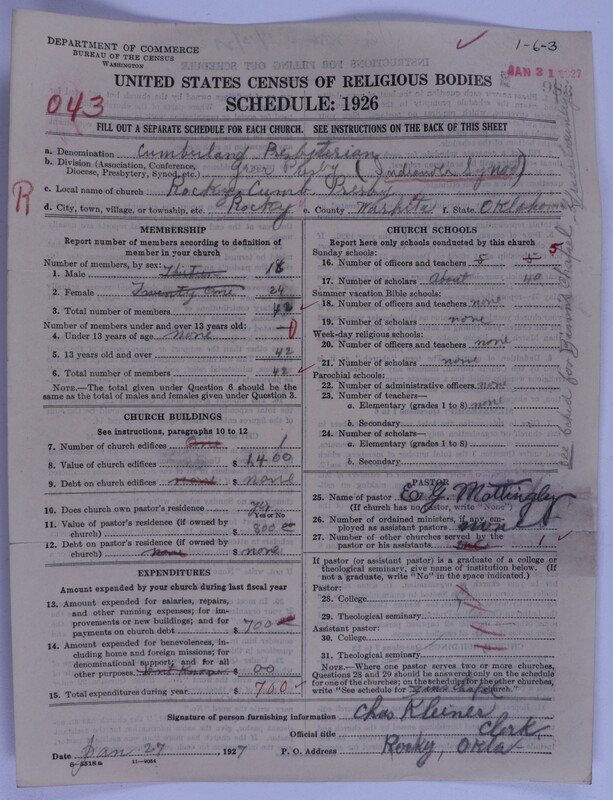 DEPARTMENT OF COMMERCE
BUREAU OF THE CENSUS
WASHINGTON
1-6-3
JAN 31 1927
UNITED STATES CENSUS OF RELIGIOUS BODIES
SCHEDULE: 1926
043
FILL OUT A SEPARATE SCHEDULE FOR EACH CHURCH. SEE INSTRUCTIONS ON THE BACK OF THIS SHEET
a. Denomination Cumberland Presbyterian
b. Division (Association, Conference, Diocese, Presbytery, Synod, etc.) Presby (Indianola Synod)
R
c. Local name of church Rocky Cumb. Presby
d. City, town, village, or township, etc. Rocky e. County Washita f. State Oklahoma
MEMBERSHIP
Report number of members according to definition of member in your church
Number of members, by sex:
1. Male 18
2. Female Twenty 24
3. Total number of members 42
Number of members under and over 13 years old:
4. Under 13 years of age none 0
5. 13 years old and over 42
6. Total number of members 42
NOTE.—The total given under Question 6 should be the same as the total of males and females given under Question 3.
CHURCH BUILDINGS
See instructions, paragraphs 10 to 12
7. Number of church edifices One 1
8. Value of church edifices $ 1400
9. Debt on church edifices none $ none
10. Does church own pastor's residence yes
Yes or No
11. Value of pastor's residence (if owned by church) $ 800
12. Debt on pastor's residence (if owned by church) none $ none
EXPENDITURES
Amount expended by your church during last fiscal year
13. Amount expended for salaries, repairs, and other running expenses; for improvements or new buildings; and for payments on church debt $ 700
14. Amount expended for benevolences, including home and foreign missions; for denominational support; and for all other purposes $ 00
15. Total expenditures during year $ 700
CHURCH SCHOOLS
Report here only schools conducted by this church
Sunday schools:
16. Number of officers and teachers 5 5 5
17. Number of scholars About 40
Summer vacation Bible schools:
18. Number of officers and teachers none
19. Number of scholars none
Week-day religious schools:
20. Number of officers and teachers none
21. Number of scholars none
Parochial schools:
22. Number of administrative officers none
23. Number of teachers—
a. Elementary (grades 1 to 8) none
b. Secondary
24. Number of scholars—
a. Elementary (grades 1 to 8)
b. Secondary
PASTOR
25. Name of pastor E. G. Mattingley
(If church has no pastor, write "None")
26. Number of ordained ministers, if any, employed as assistant pastors none
27. Number of other churches served by the pastor or his assistants 1
If pastor (or assistant pastor) is a graduate of a college or theological seminary, give name of institution below. (If not a graduate, write "No" in the space indicated.)
Pastor:
28. College
29. Theological seminary
Assistant pastor:
30. College
31. Theological seminary
NOTE.—Where one pastor serves two or more churches, Questions 28 and 29 should be answered only on the schedule for one of the churches; on the schedules for the other churches, write "See schedule for church."
Signature of person furnishing information Chas Kleiner
Official title Clerk
Date Jan 27, 1927 P. O. Address Rocky, Okla
8-5518a 11-9064